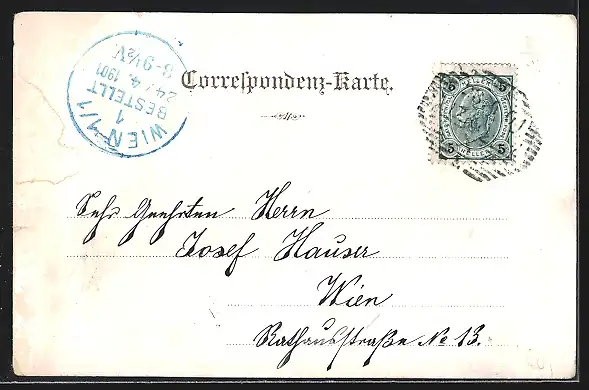 WIEN 1/1
1
BESTELLT
24/4 1901
8-9½V.
Correspondenz-Karte.
5 5
5 5
HELLER
Sehr Geehrten Herrn
Josef Hauser
Wien
Rathausstraße No 13.